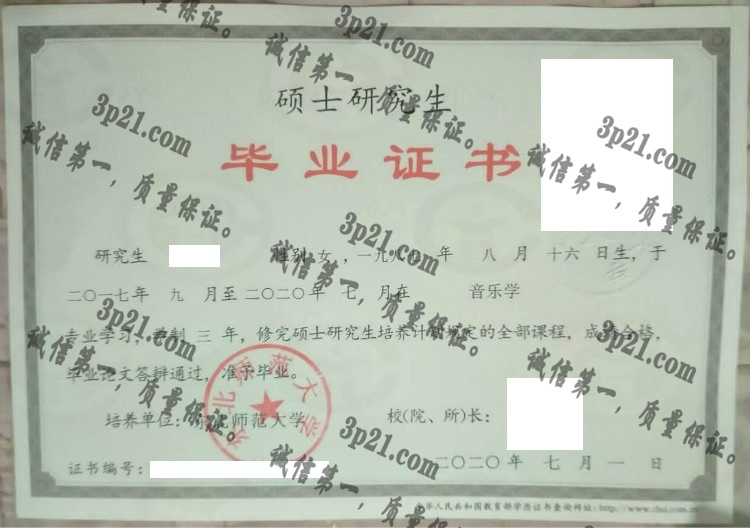 硕士研究生
毕业证书
研究生 性别 女 ，一九八九 年 八 月 十六 日生，于
二〇一七年 九 月至二〇二〇年 七 月在 音乐学
专业学习，学制 三 年，修完硕士研究生培养计划规定的全部课程，成绩合格，
毕业论文答辩通过，准予毕业。
培养单位：东北师范大学 校(院、所)长：
证书编号： 二〇二〇年 七 月 一 日
中华人民共和国教育部学历证书查询网址：http://www.chsi.com.cn
北师范大学
3p21.com
诚信第一，质量保证。
3p21.com
诚信第一，质量保证。
3p21.com
诚信第一，质量保证。
3p21.com
诚信第一，质量保证。
3p21.com
诚信第一，质量保证。
3p21.com
诚信第一，质量保证。
3p21.com
诚信第一，质量保证。
质量保证。